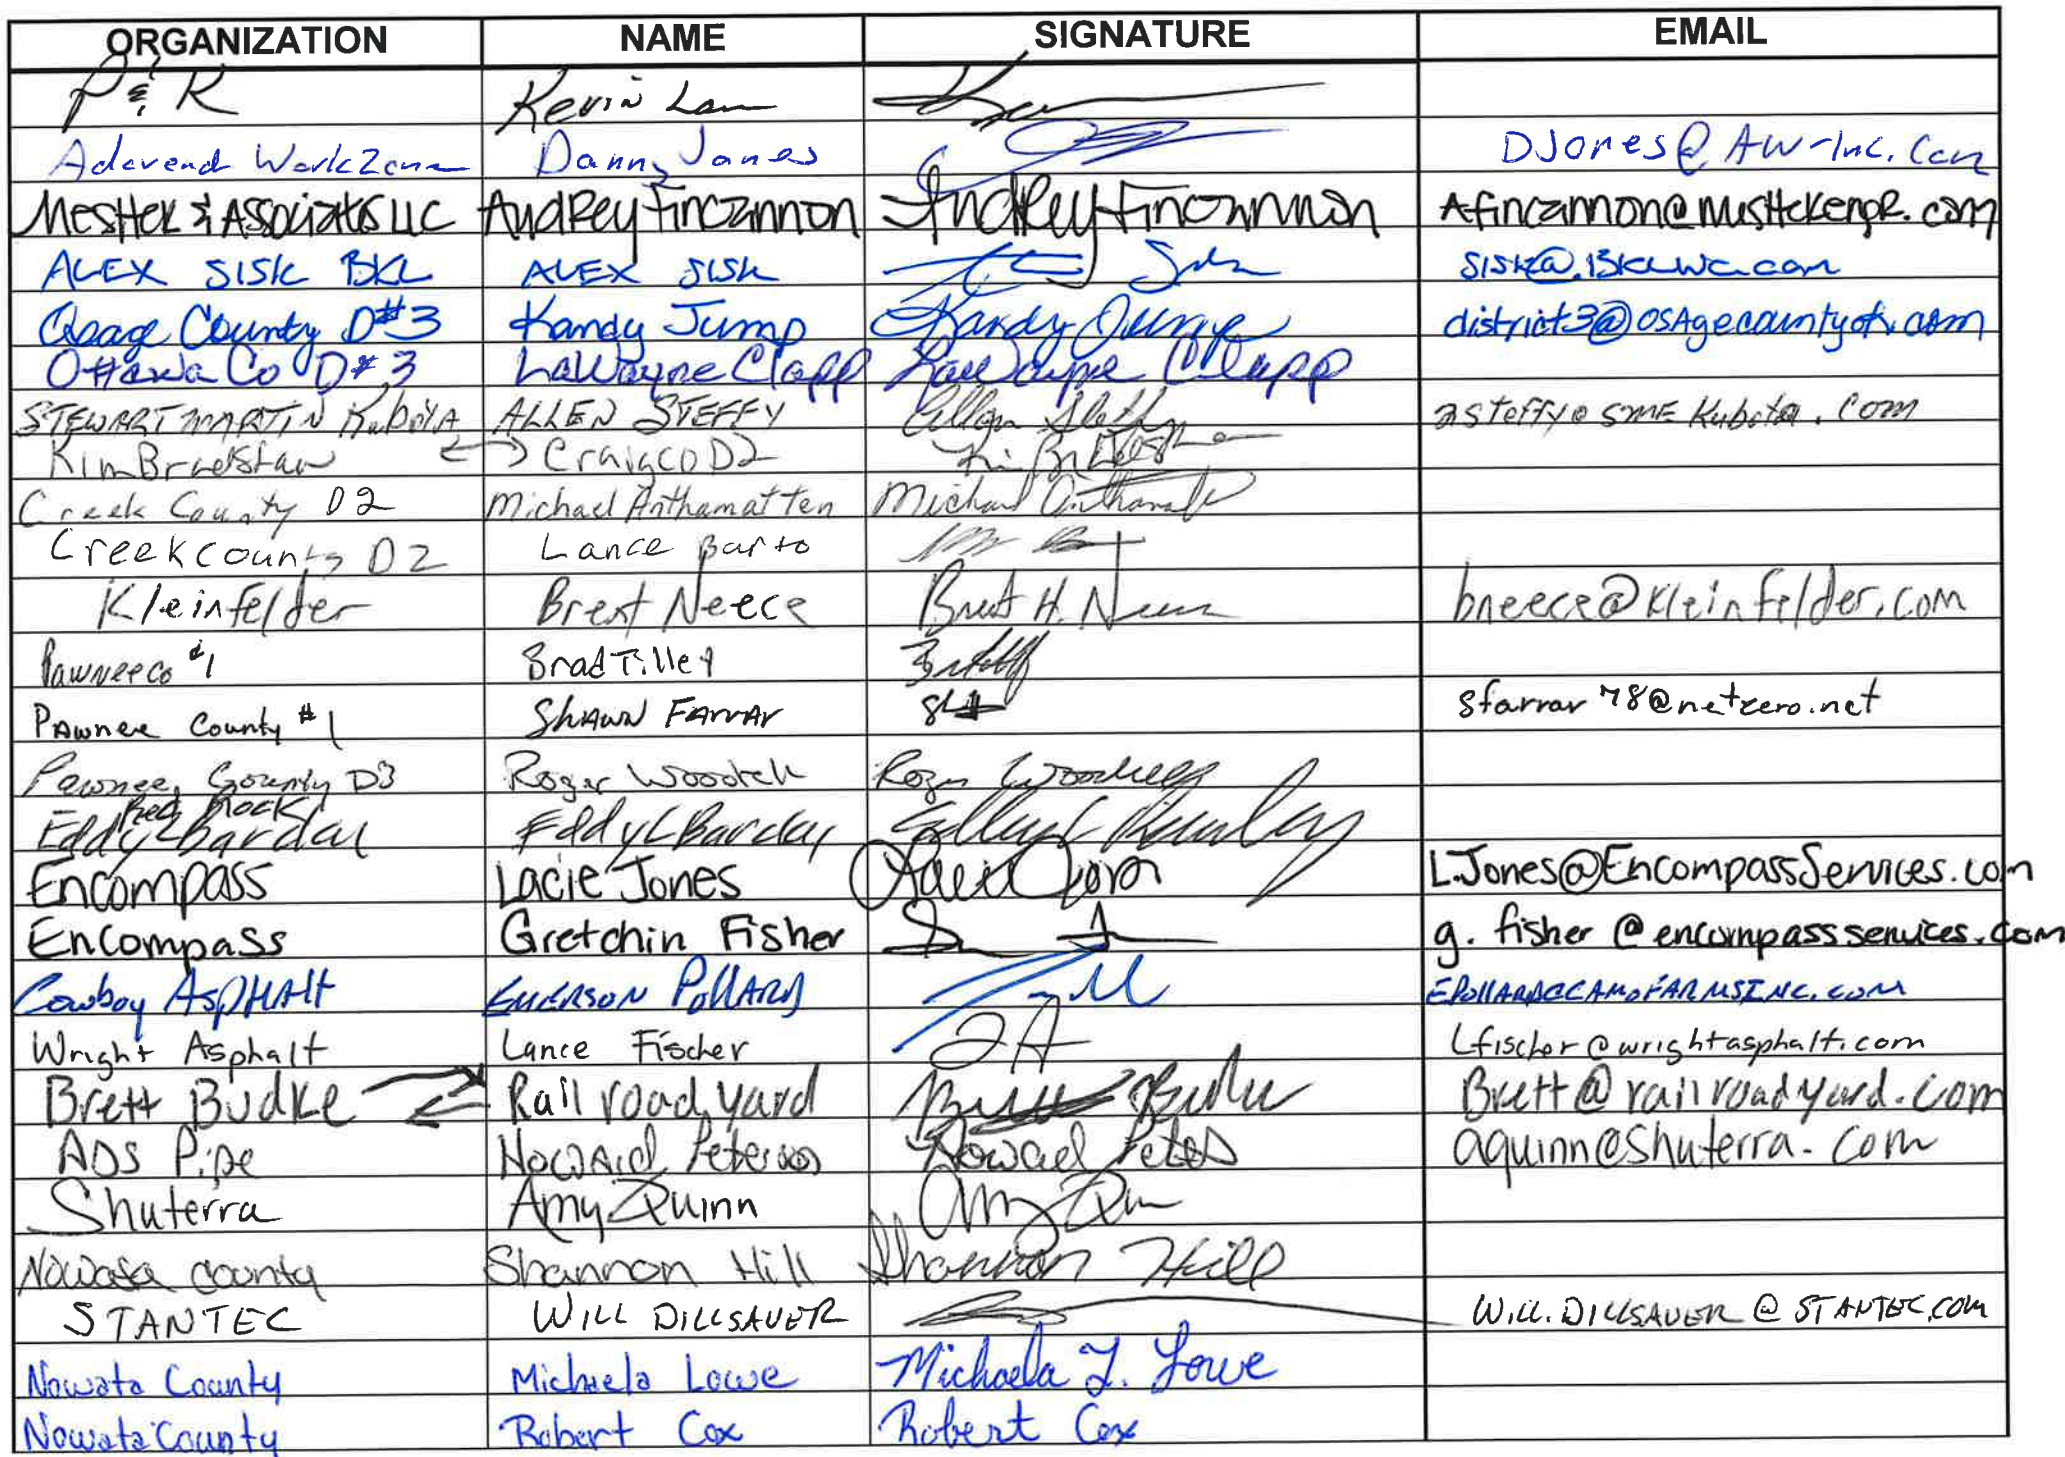 ORGANIZATION NAME SIGNATURE EMAIL
P & R Kevin
Workzone Danny Jones DJones@AW-Inc.com
Meshek & Associates LLC Audrey Fincannon Audrey Fincannon
ALEX SISK BKL ALEX SISK
Osage County D#3 Randy Jump Randy Jump district3@osagecountyok.com
Ottawa Co D#3 LaWayne Clapp LaWayne Clapp
STEWART MARTIN Kubota ALLEN STEFFY Allen Steffy asteffy@SMEKubota.com
Craig CO D2
Creek County D2 Michael Anthamatten Michael
Creek County D2 Lance Barto
Kleinfelder Brent Neece Brent H. Neece bneece@kleinfelder.com
Pawnee Co #1 Brad Tilley
Pawnee County #1 Shawn Farrar sfarrar78@netzero.net
Pawnee County D3 Roger Roger
Red Rock
Eddy L Barclay Eddy L Barclay
Encompass Lacie Jones Lacie Jones L.Jones@EncompassServices.com
Encompass Gretchin Fisher g.fisher@encompassservices.com
Cowboy Asphalt EMERSON POLLARD
Wright Asphalt Lance Fischer Lfischer@wrightasphalt.com
Brett Budke Railroad yard Brett Budke Brett@railroadyard.com
ADS Pipe Howard Peterson Howard aquinn@shuterra.com
Shuterra Amy Quinn Amy
Nowata County Shannon Hill Shannon Hill
STANTEC WILL DILLSAVER WILL.DILLSAVER@STANTEC.COM
Nowata County Michaela Lowe Michaela L. Lowe
Nowata County Robert Cox Robert Cox